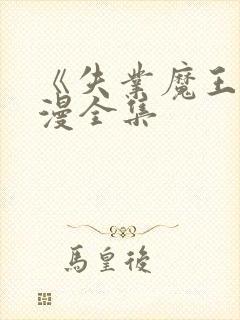 《失業魔王
漫全集
馬皇後